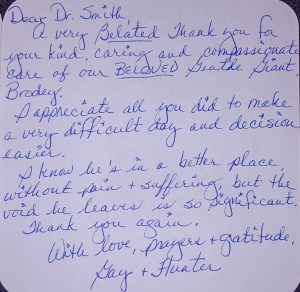 Dear Dr. Smith,
A very Belated Thank you for
your kind, caring and compassionate
care of our BELOVED Gentle Giant
Brodey.
I appreciate all you did to make
a very difficult day and decision
easier.
I know he's in a better place
without pain + suffering, but the
void he leaves is so significant.
Thank you again.
With love, prayers + gratitude,
Gay + Hunter